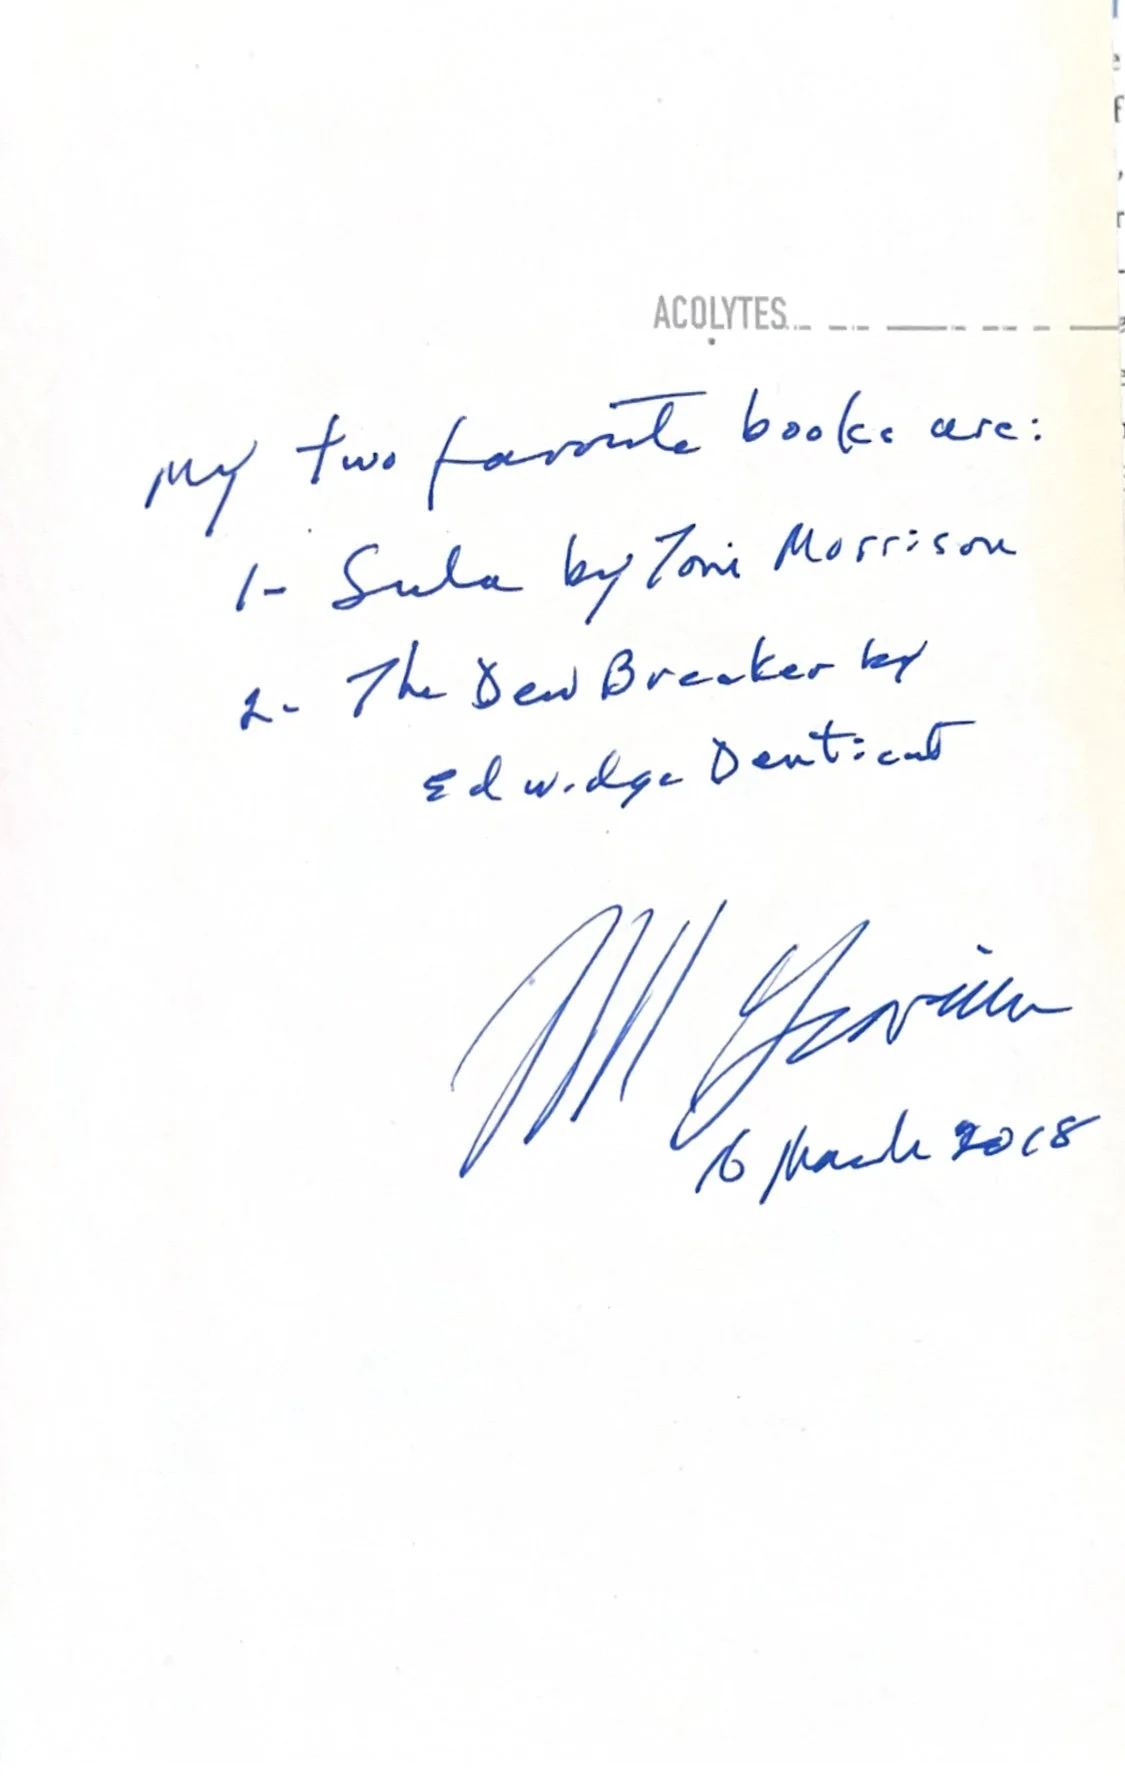 ACOLYTES
My two favorite books are:
1- Sula by Toni Morrison
2- The Dew Breaker by
Edwidge Denticat
March 2018